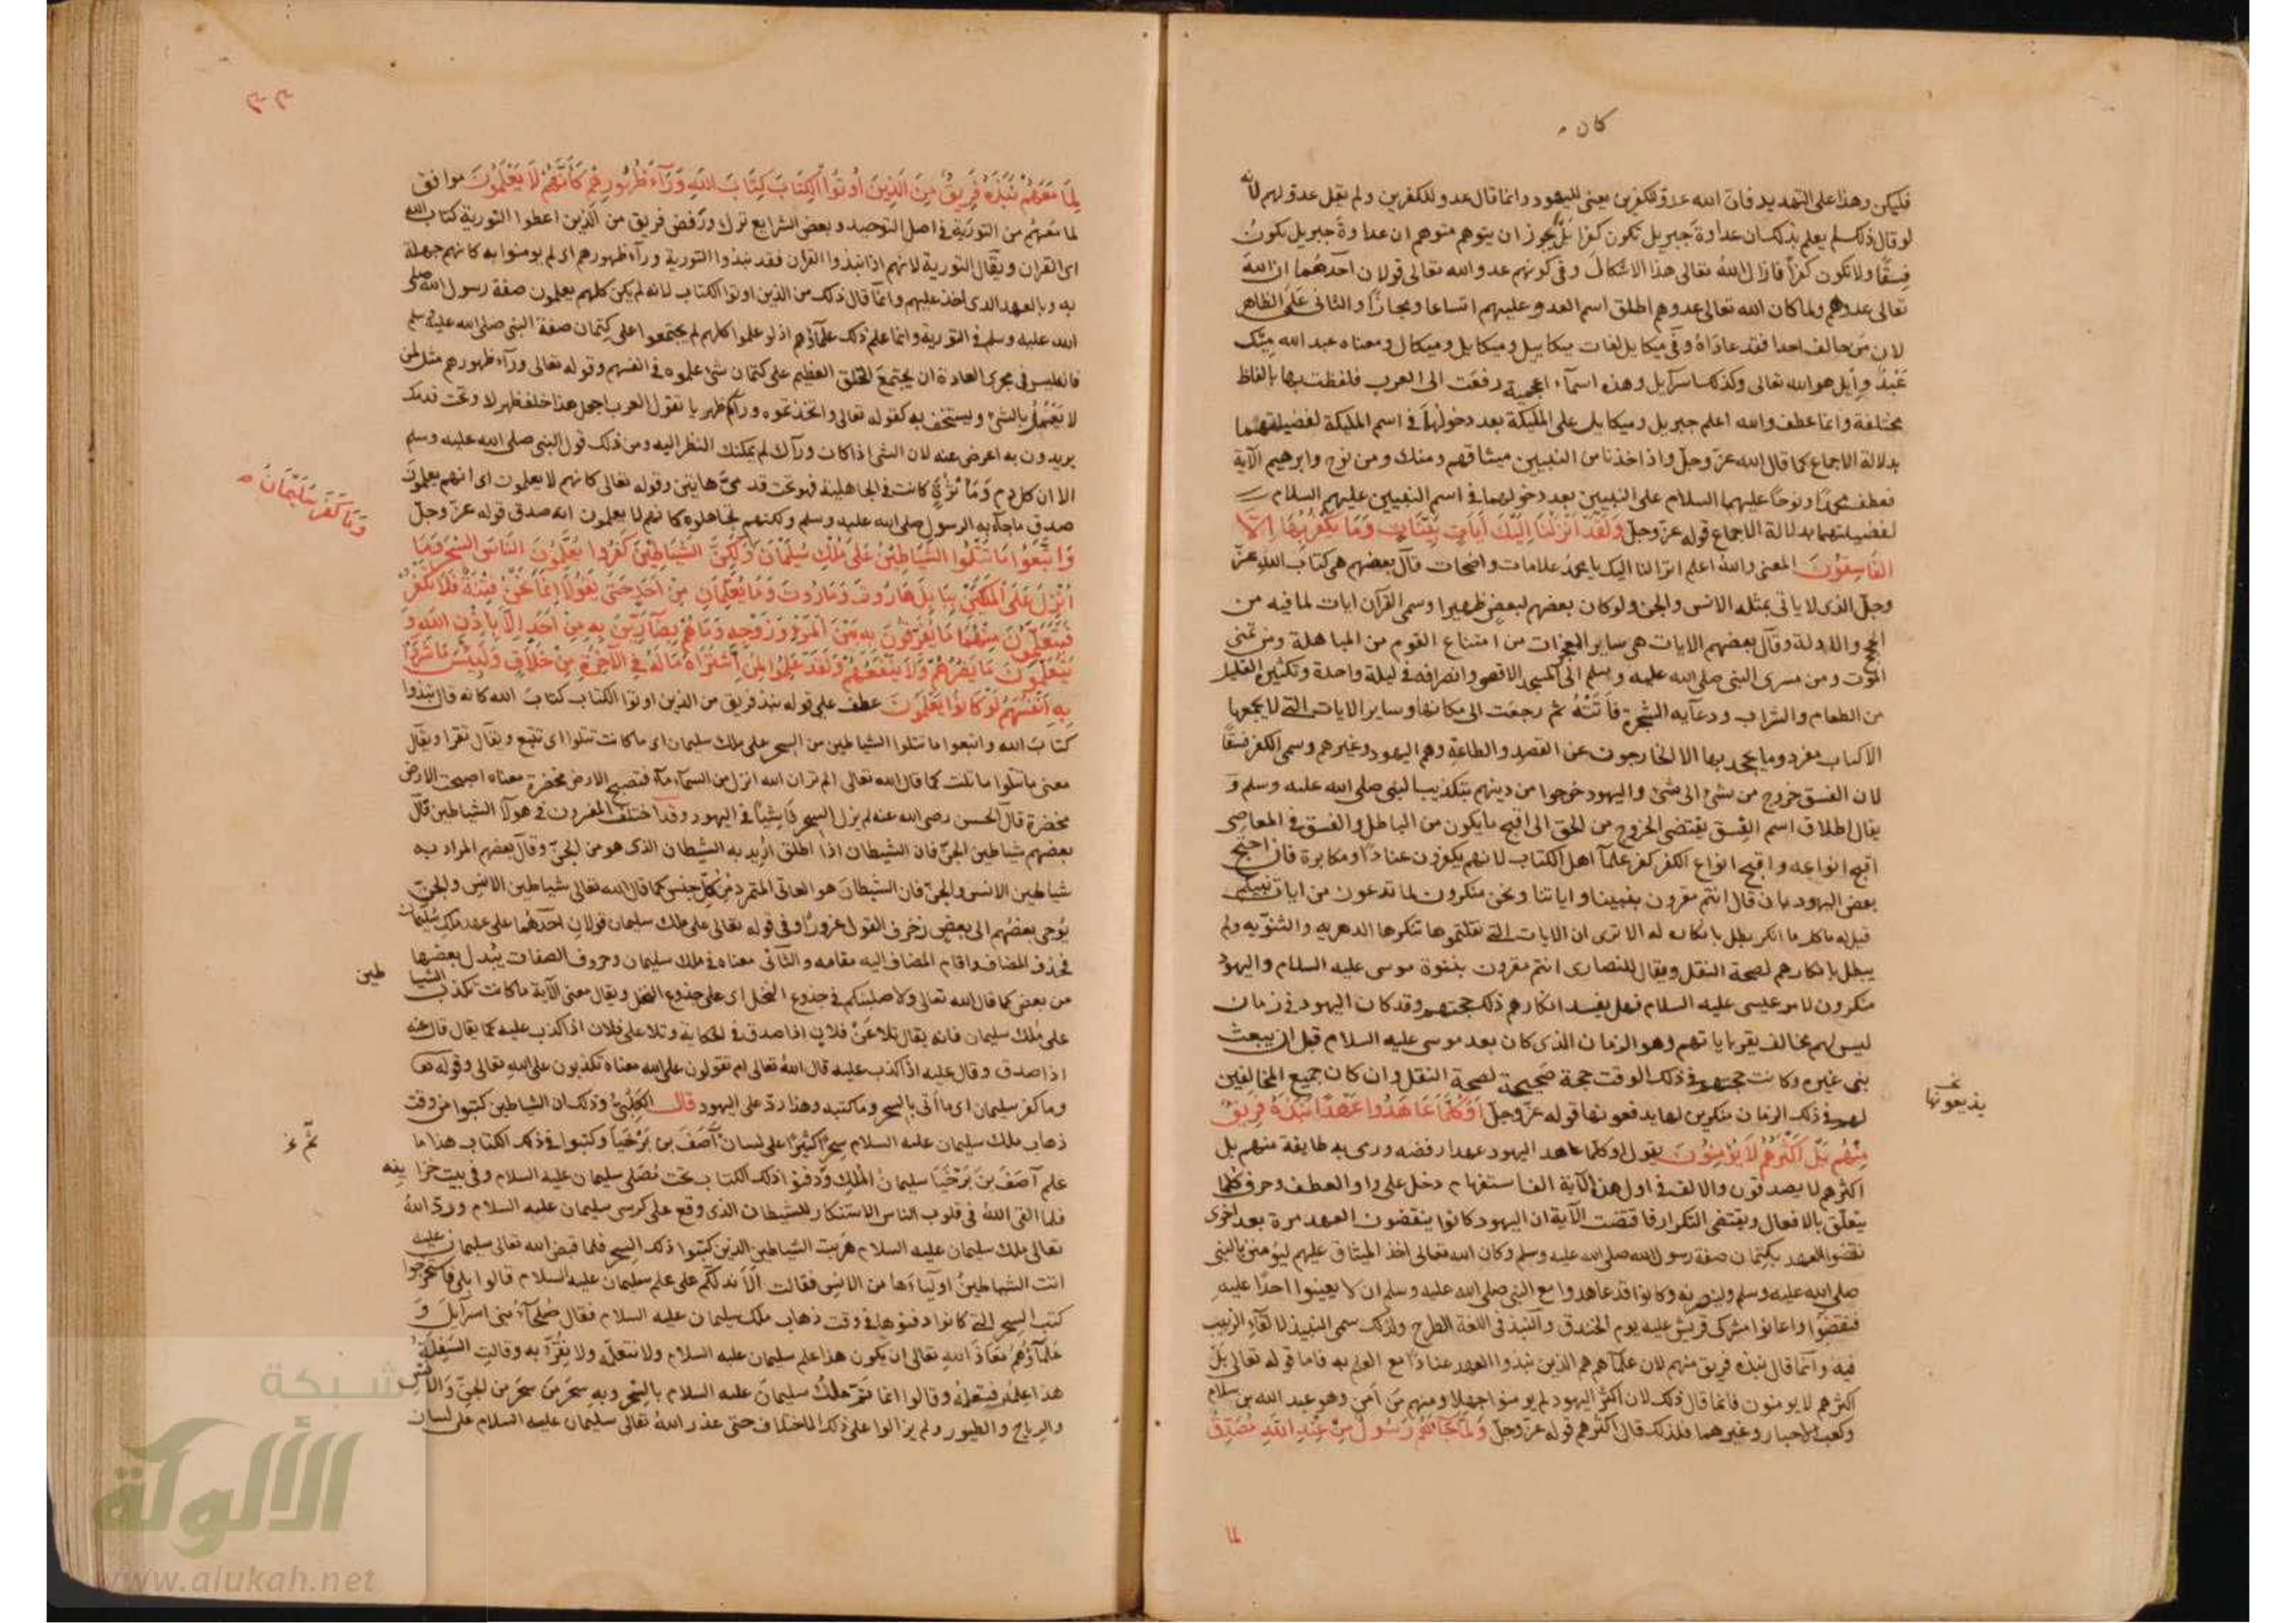 كان
فليكن وهذا على التهديد فان الله عدو للكفرين يعنى لليهود وانما قال عدو للكفرين ولم يقل عدو لهم لانه
لو قال ذلك لم يعلم بذلك ان عداوة جبريل تكون كفرا بل يجوز ان يتوهم متوهم ان عداوة جبريل يكون
فسقا ولا تكون كفرا فازال الله تعالى هذا الاشكال وفى كونهم عدو الله تعالى قولان احدهما ان الله
تعالى عدوهم ولما كان الله تعالى عدوهم اطلق اسم العدو عليهم اتساعا ومجازا والثانى على الظاهر
لان من خالف احدا فقد عاداه وفى ميكايل لغات ميكاييل وميكايل وميكال ومعناه عبد الله ميك
عبد وايل هو الله تعالى وكذلك اسرآيل وهذه اسمآء اعجمية دفعت الى العرب فلفظت بها بالفاظ
مختلفة وانما عطف والله اعلم جبريل وميكايل على المليكة بعد دخولهما فى اسم المليكة لفضيلتهما
بدلالة الاجماع كما قال الله عز وجل واذ اخذنا من النبيين ميثاقهم ومنك ومن نوح وابرهيم الآية
فعطف محمدا ونوحا عليهما السلام على النبيين بعد دخولهما فى اسم النبيين عليهم السلام
لفضيلتهما بدلالة الاجماع قوله عز وجل ولقد انزلنا اليك آيات بينات وما يكفر بها الا
الفاسقون المعنى والله اعلم انزلنا اليك يا محمد علامات واضحات قال بعضهم هى كتاب الله عز
وجل الذى لا ياتى بمثله الانس والجن ولو كان بعضهم لبعض ظهيرا وسمى القرآن ايات لما فيه من
الحجج والادلة وقال بعضهم الايات هى ساير المعجزات من امتناع القوم من المباهلة ومن تمنى
الموت ومن مسرى النبى صلى الله عليه وسلم الى المسجد الاقصى وانصرافه فى ليلة واحدة وتكثير القليل
من الطعام والشراب ودعآيه الشجرة فاتته ثم رجعت الى مكانها وساير الايات التى لا يجمعها
الا كتاب مفرد وما يجحد بها الا الخارجون عن القصد والطاعة وهم اليهود وغيرهم وسمى الكفر فسقا
لان الفسق خروج من شىء الى شىء واليهود خرجوا من دينهم بتكذيب النبى صلى الله عليه وسلم و
يقال اطلاق اسم الفسق يقتضى الخروج من الحق الى اقبح ما يكون من الباطل والفسق فى المعاصى
اقبح انواعه واقبح انواع الكفر كفر علمآ اهل الكتاب لانهم يكفرون عنادا ومكابرة فان احتج
بعض اليهود بان قال انتم مقرون بنبينا واياتنا ونحن منكرون لما تدعون من ايات نبيكم
قيل له ما كل ما انكر بطل بانكاره الا ترى ان الايات التى نقلتموها تنكرها الدهرية والثنوية ولم
يبطل بانكارهم لصحة النقل ويقال للنصارى انتم مقرون بنبوة موسى عليه السلام واليهود
منكرون لامر عيسى عليه السلام فهل يفسد انكارهم ذلك حجتهم وقد كان اليهود فى زمان
ليس لهم مخالف يقر باياتهم وهو الزمان الذى كان بعد موسى عليه السلام قبل ان يبعث
نبى غيره وكانت حجتهم فى ذلك الوقت حجة صحيحة لصحة النقل وان كان جميع المخالفين
لهم فى ذلك الزمان منكرين لها يدفعونها قوله عز وجل اوكلما عاهدوا عهدا نبذه فريق
منهم بل اكثرهم لا يؤمنون يقول اوكلما عاهد اليهود عهدا رفضه ورمى به طايفة منهم بل
اكثرهم لا يصدقون والالف فى اول هذه الآية الف استفهام دخل على واو العطف وحرف كلما
يتعلق بالافعال ويقتضى التكرار فاقتضت الآية ان اليهود كانوا ينقضون العهد مرة بعد اخرى
نقضوا العهد بكتمان صفة رسول الله صلى الله عليه وسلم وكان الله تعالى اخذ الميثاق عليهم ليؤمنن بالنبى
صلى الله عليه وسلم ولينصرنه وكانوا قد عاهدوا مع النبى صلى الله عليه وسلم ان لا يعينوا احدا عليه
فنقضوا واعانوا مشركى قريش عليه يوم الخندق والنبذ فى اللغة الطرح ولذلك سمى النبيذ لالقآء الزبيب
فيه وانما قال نبذه فريق منهم لان علمآهم هم الذين نبذوا العهد عنادا مع العلم به فاما قوله تعالى بل
اكثرهم لا يومنون فانما قال ذلك لان اكثر اليهود لم يومنوا جهلا ومنهم من آمن وهو عبد الله بن سلام
وكعب الاحبار وغيرهما فلذلك قال اكثرهم قوله عز وجل ولما جآءهم رسول من عند الله مصدق
يذيعونها
لما
٣٣
لما معهم نبذ فريق من الذين اوتوا الكتاب كتاب الله ورآء ظهورهم كانهم لا يعلمون موافق
لما معهم من التورية فى اصل التوحيد وبعض الشرايع ترك ورفض فريق من الذين اعطوا التورية كتاب الله
اى القران ويقال التورية لانهم اذا نبذوا القران فقد نبذوا التورية ورآء ظهورهم اى لم يومنوا به كانهم جهلة
به وبالعهد الذى اخذ عليهم وانما قال ذلك من الذين اوتوا الكتاب لانه لم يكن كلهم يعلمون صفة رسول الله صلى
الله عليه وسلم فى التورية وانما علم ذلك علمآؤهم اذ لو علموا كلهم لم يجتمعوا على كتمان صفة النبى صلى الله عليه وسلم
فانه ليس فى مجرى العادة ان يجتمع الخلق العظيم على كتمان شىء علموه فى انفسهم وقوله تعالى ورآء ظهورهم مثل لمن
لا يعمل بالشىء ويستخف به كقوله تعالى واتخذتموه ورآكم ظهريا تقول العرب اجعل هذا خلف ظهرك وتحت قدمك
يريدون به اعرض عنه لان الشى اذا كان ورآك لم يمكنك النظر اليه ومن ذلك قول النبى صلى الله عليه وسلم
الا ان كل دم ومأثرة كانت فى الجاهلية فهو تحت قدمى هاتين وقوله تعالى كانهم لا يعلمون اى انهم يعلمون
صدق ما جآء به الرسول صلى الله عليه وسلم ولكنهم تجاهلوا كانهم لا يعلمون انه صدق قوله عز وجل
وما كفر سليمان
واتبعوا ما تتلوا الشياطين على ملك سليمان ولكن الشياطين كفروا يعلمون الناس السحر وما
انزل على الملكين ببابل هاروت وماروت وما يعلمان من احد حتى يقولا انما نحن فتنة فلا تكفر
فيتعلمون منهما ما يفرقون به بين المرء وزوجه وما هم بضآرين به من احد الا باذن الله و
يتعلمون ما يضرهم ولا ينفعهم ولقد علموا لمن اشتراه ما له فى الآخرة من خلاق ولبئس ما شروا
به انفسهم لو كانوا يعلمون عطف على قوله نبذ فريق من الذين اوتوا الكتاب كتاب الله كانه قال نبذوا
كتاب الله واتبعوا ما تتلوا الشياطين من السحر على ملك سليمان اى ما كانت تتلوا اى تتبع ويقال تقرا ويقال
معنى ما تتلوا ما تلت كما قال الله تعالى الم تر ان الله انزل من السمآء مآء فتصبح الارض مخضرة معناه اصبحت الارض
مخضرة قال الحسن رضى الله عنه لم يزل السحر فاشيا فى اليهود وقد اختلف المفسرون فى هولآء الشياطين قال
بعضهم شياطين الجن فان الشيطان اذا اطلق اريد به الشيطان الذى هو من الجن وقال بعضهم المراد به
شياطين الانس والجن فان الشيطان هو العاتى المتمرد من كل جنس كما قال الله تعالى شياطين الانس والجن
يوحى بعضهم الى بعض زخرف القول غرورا وفى قوله تعالى على ملك سليمان قولان احدهما على عهد ملك سليمان
فحذف المضاف واقام المضاف اليه مقامه والثانى معناه فى ملك سليمان وحروف الصفات يبدل بعضها
من بعض كما قال الله تعالى ولاصلبنكم فى جذوع النخل اى على جذوع النخل ويقال معنى الآية ما كانت تكذب الشيا طين
على ملك سليمان فانه يقال تلا عن فلان اذا صدق فى الحكاية وتلا على فلان اذا كذب عليه كما يقال قال عنه
اذا صدق وقال عليه اذا كذب عليه قال الله تعالى ام تقولون على الله معناه تكذبون على الله تعالى وقوله تعا
وما كفر سليمان اى ما اتى بالسحر وما كتبه وهذا رد على اليهود قال الكلبى وذلك ان الشياطين كتبوا من وقت
ذهاب ملك سليمان عليه السلام سحرا كثيرا على لسان آصف بن برخيا وكتبوا فى ذلك الكتاب هذا ما
علم آصف بن برخيا سليمان الملك ودفنوا ذلك الكتاب تحت مصلى سليمان عليه السلام وفى بيت خزا ينه
فلما القى الله فى قلوب الناس الاستنكار للشيطان الذى وقع على كرسى سليمان عليه السلام ورد الله
تعالى ملك سليمان عليه السلام هربت الشياطين الذين كتبوا ذلك السحر فلما قبض الله تعالى سليمان عليه
اتت الشياطين اوليآءها من الانس فقالت الا ندلكم على علم سليمان عليه السلام قالوا بلى فاستخرجوا
كتب السحر التى كانوا دفنوها فى وقت ذهاب ملك سليمان عليه السلام فقال صلحآء بنى اسرآيل و
علمآؤهم معاذ الله تعالى ان يكون هذا علم سليمان عليه السلام ولا نتعلمه ولا نقر به وقالت السفلة
هذا علمه فنتعلمه وقالوا انما تم ملك سليمان عليه السلام بالسحر وبه سخر من سخر من الجن والانس
والرياح والطيور ولم يزالوا على ذلك الاختلاف حتى عذر الله تعالى سليمان عليه السلام على لسان
شبكة
الألوكة
www.alukah.net